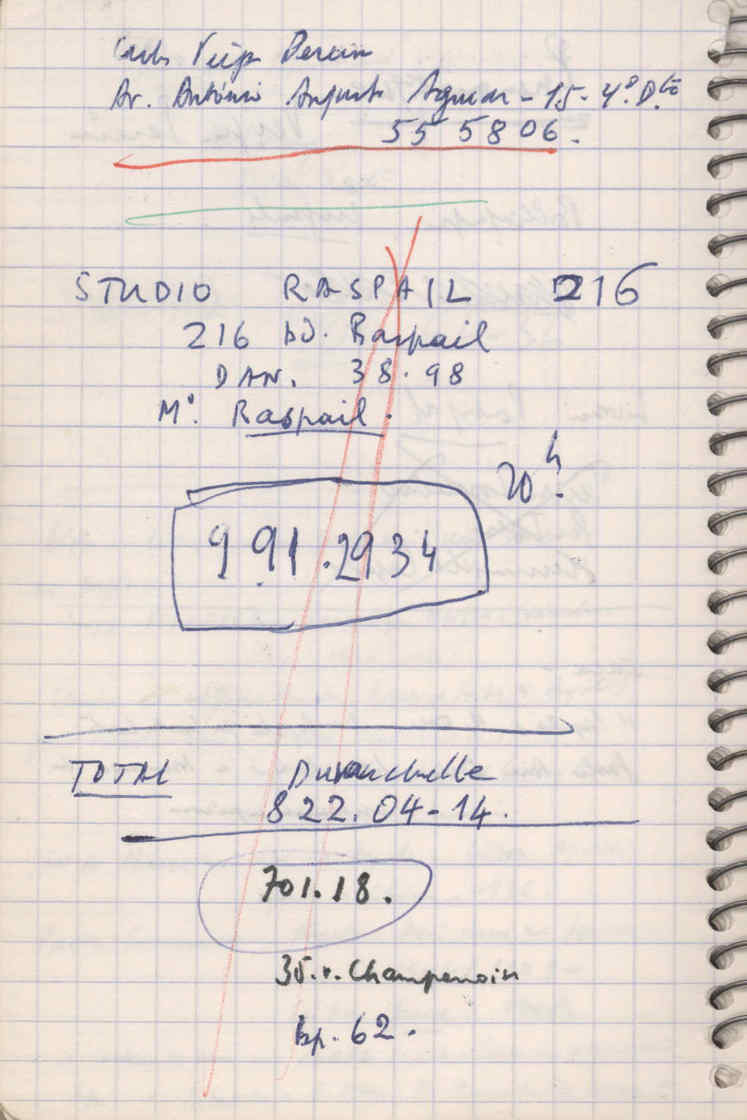 Av. António Augusto Aguiar - 15 - 4º Dto
55 58 06.
STUDIO RASPAIL 216
216 bd. Raspail
DAN. 38.98
M°. Raspail.
20h.
991.2934
TOTAL
822.04-14.
701.18.
35.r. Champenoin
bp. 62.